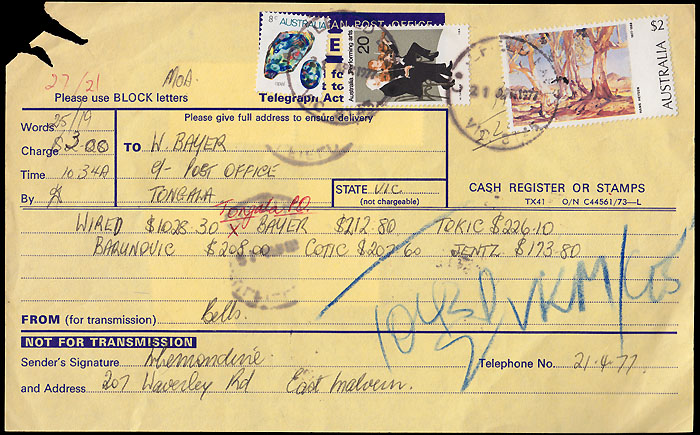 8c AUSTRALIA
AN POST OFFICE
20
Australia Performing arts
$2
AUSTRALIA
27/21
MOA
Telegraph Act
21 1977
Please use BLOCK letters
Please give full address to ensure delivery
Words 25/19
Charge $
Time 10.34A
By
TO W. BAYER
c/- POST OFFICE
TONGALA
STATE VIC.
(not chargeable)
CASH REGISTER OR STAMPS
TX41 O/N C44561/73—L
Tongala P.O.
WIRED $1028.30 X BAYER $212.80 TOKIC $226.10
BARUNDVIC $208.00 COTIC $207.60 JENTZ $173.80
FROM (for transmission) Bells.
NOT FOR TRANSMISSION
Sender's Signature
Telephone No. 21.4.77.
and Address 207 Waverley Rd East Malvern.